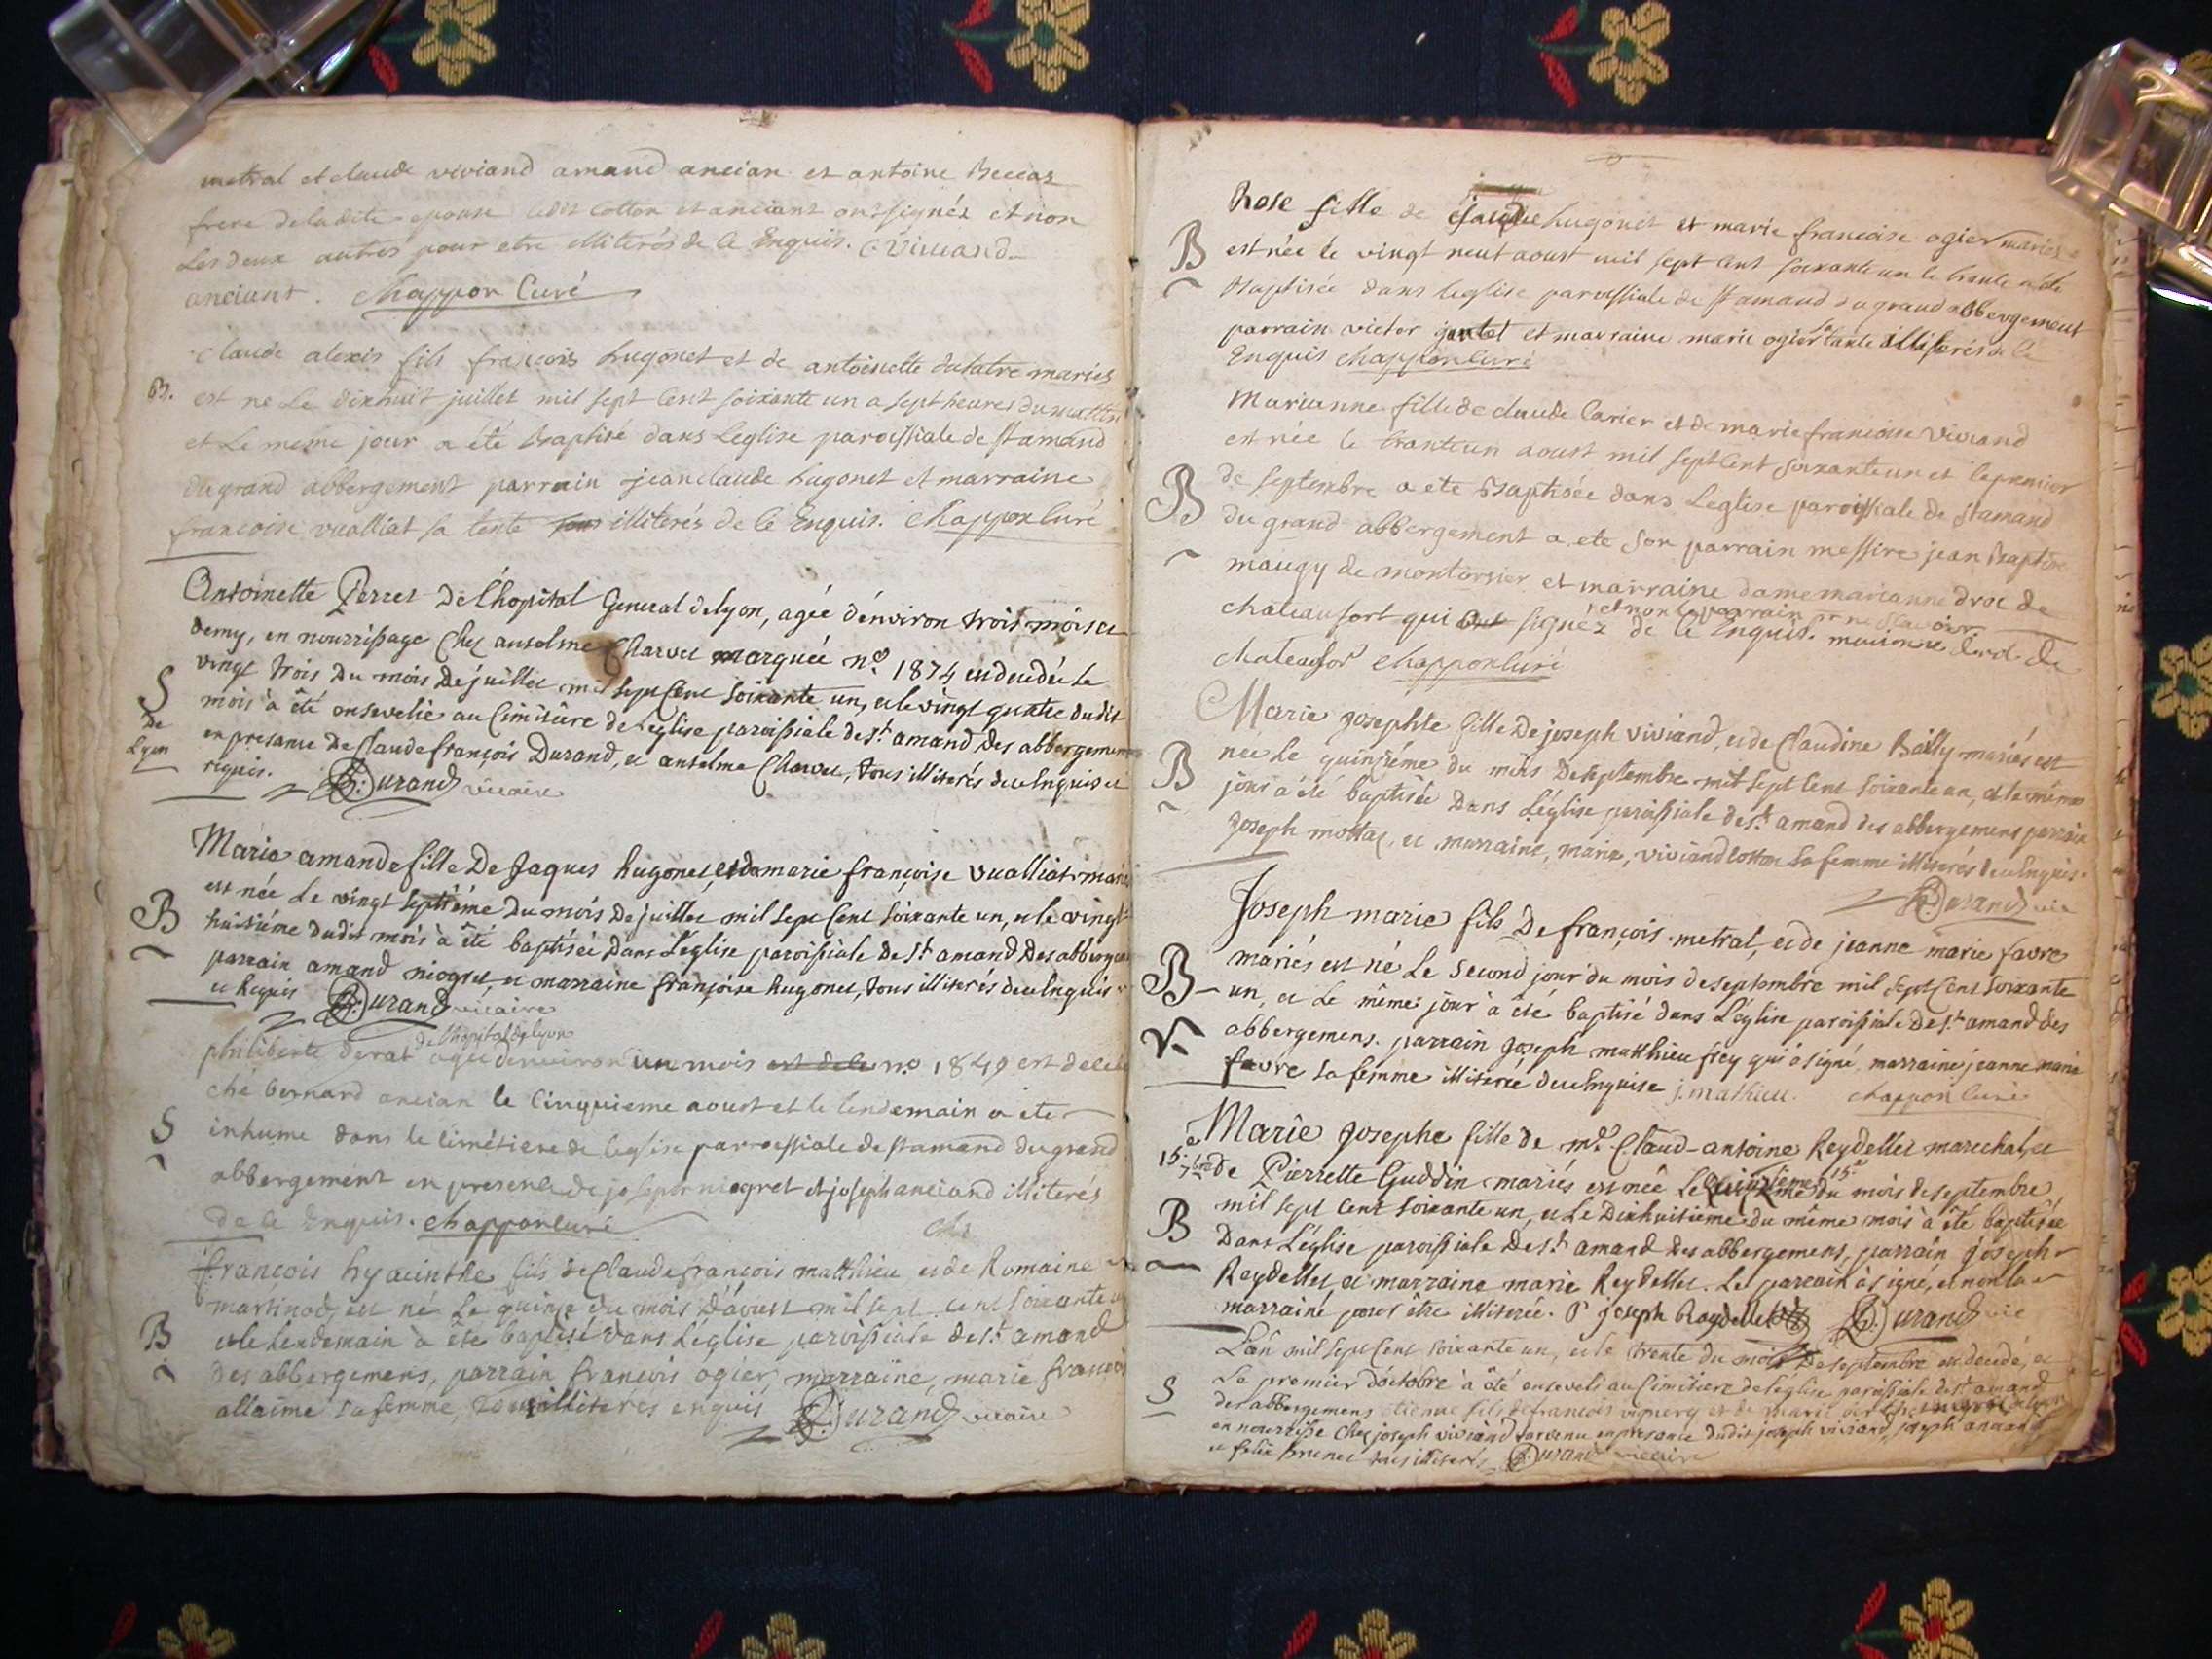 metral et claude viviand amand ancian et antoine Beccas
frere de ladite epouse ledit Cotton et anciant ont signés et non
Les deux autres pour etre illiterés de ce Enquis. C Viviand
anciant. Chappon Curé
claude alexis fils francois hugonet et de antoinette mariés
B. est ne Le dixhuit juillet mil sept Cent soixante un a sept heures du mattin
et Le meme jour a été Baptisé dans Leglise paroissiale de st amand
du grand abbergement parrain jean claude hugonet et marraine
francoise vualliat sa tente illiterés de ce Enquis. Chappon Curé
Antoinette Perret De l'hopital General de lyon, agée d'énviron trois mois et
demy, en nourrissage Chez anselme Charvet marquée n.° 1874 est decedée le
vingt trois Du mois De juillet mil sept Cent soixante un, et le vingt quatre dudit
S mois à été ensevelie au Cimitiere de L'eglise paroissiale de st. amand Des abbergemens
De Lyon en presance De Claude françois Durand, et anselme Charvet, tous illiterés de ce Enquis et
requis. Durand vicaire
Marie amande fille De Jaques hugonet, et de marie françoise vualliat mariés
est née Le vingt septiéme Du mois De juillet mil sept Cent soixante un, et le vingt
B huitiéme dudit mois à été baptisée Dans L'église paroissiale De st. amand Des abbergem
parrain amand niogret et marraine françoise hugonet, tous illiterés de ce Enquis
et Requis Durand vicaire
de l'hopital de lyon
philiberte derat agée denviron un mois est de ce n.° 1849 est decede
ché bernard ancian le Cinquieme aoust et le lendemain a ete
S inhume dans le Cimetiere de leglise parroessiale de st amand du grand
abbergement en presence de joseph niogret et joseph anciand illiterés
de ce Enquis. Chappon Curé
françois hyacinthe fils de Claude françois matthieu et de Romaine
martinod, est né Le quinze du mois D'avust mil sept cent soixante
B et le lendemain à été baptisé Dans L'église paroissiale de st. amand
des abbergemens, parrain françois ogier, marraine, marie françois
allaime sa femme, tous illiterés enquis Durand vicaire
Rose fille de Claude hugonet et marie francoise ogier mariés
B est née le vingt neuf aoust mil sept Cent soixante un le trante a été
Baptisée dans leglise paroissiale de st amand du grand abbergement
parrain victor jantet et marraine marie ogier sa tante illiterés de ce
Enquis Chappon Curé
Marianne fille de claude Carier et de marie francoise viviand
est née le tranteun aoust mil sept Cent soixante un et le premier
B de septembre a ete Baptisée dans Leglise paroissiale de st amand
du grand abbergement a ete son parrain messire jean Baptiste
maugy de montorsier et marraine dame marianne droc de
et non le parrain pr ne scavoir
chateaufort qui ont signéz de ce Enquis. marianne droc de
chateaufor Chappon Curé
Marie Josephte fille De joseph viviand, et de Claudine Bailly mariés est
B née Le quinziéme du mois De septembre mil sept Cent soixante un, et le même
jour à été baptisée Dans L'église paroissiale de st. amand des abbergemens parrain
Joseph mottaz, et marraine, marie, viviand Cottaz sa femme illiterés de ce Enquis.
Durand vic
Joseph marie fils De françois metral, et de jeanne marie favre
mariés est né Le second jour du mois de septembre mil sept Cent soixante
B un, et Le même jour à été baptisé dans L'église paroissiale De st. amand des
abbergemens. parrain Joseph matthieu frey qui a signé, marraine jeanne marie
favre sa femme illiterée de ce Enquise j. mathieu. Chappon Curé
Marie Josephe fille de mre. Claud-antoine Reydellet marechal, et
15.e 7bre de Pierrette Guddin mariés est née Le quinziéme 15.e du mois de septembre
mil sept Cent soixante un, et Le Dixhuitieme du même mois à été baptisée
B Dans L'église paroissiale De st. amand des abbergemens, parrain Joseph
Reydellet, et marraine marie Reydellet. Le parrain à signé, et non la
marraine pour être illiterée. joseph Reydellet Durand vic
L'an mil sept Cent soixante un, et le trente du mois De septembre est decedé, et
Le premier d'octobre à été enseveli au Cimitiere de L'église paroissiale de st. amand
S des abbergemens etienne fils de francois vignery et de marie
en nourrisse Chez joseph viviand favenu en presance dudit joseph viviand, joseph anciand
et felix brunet tous illiterés Durand vicaire